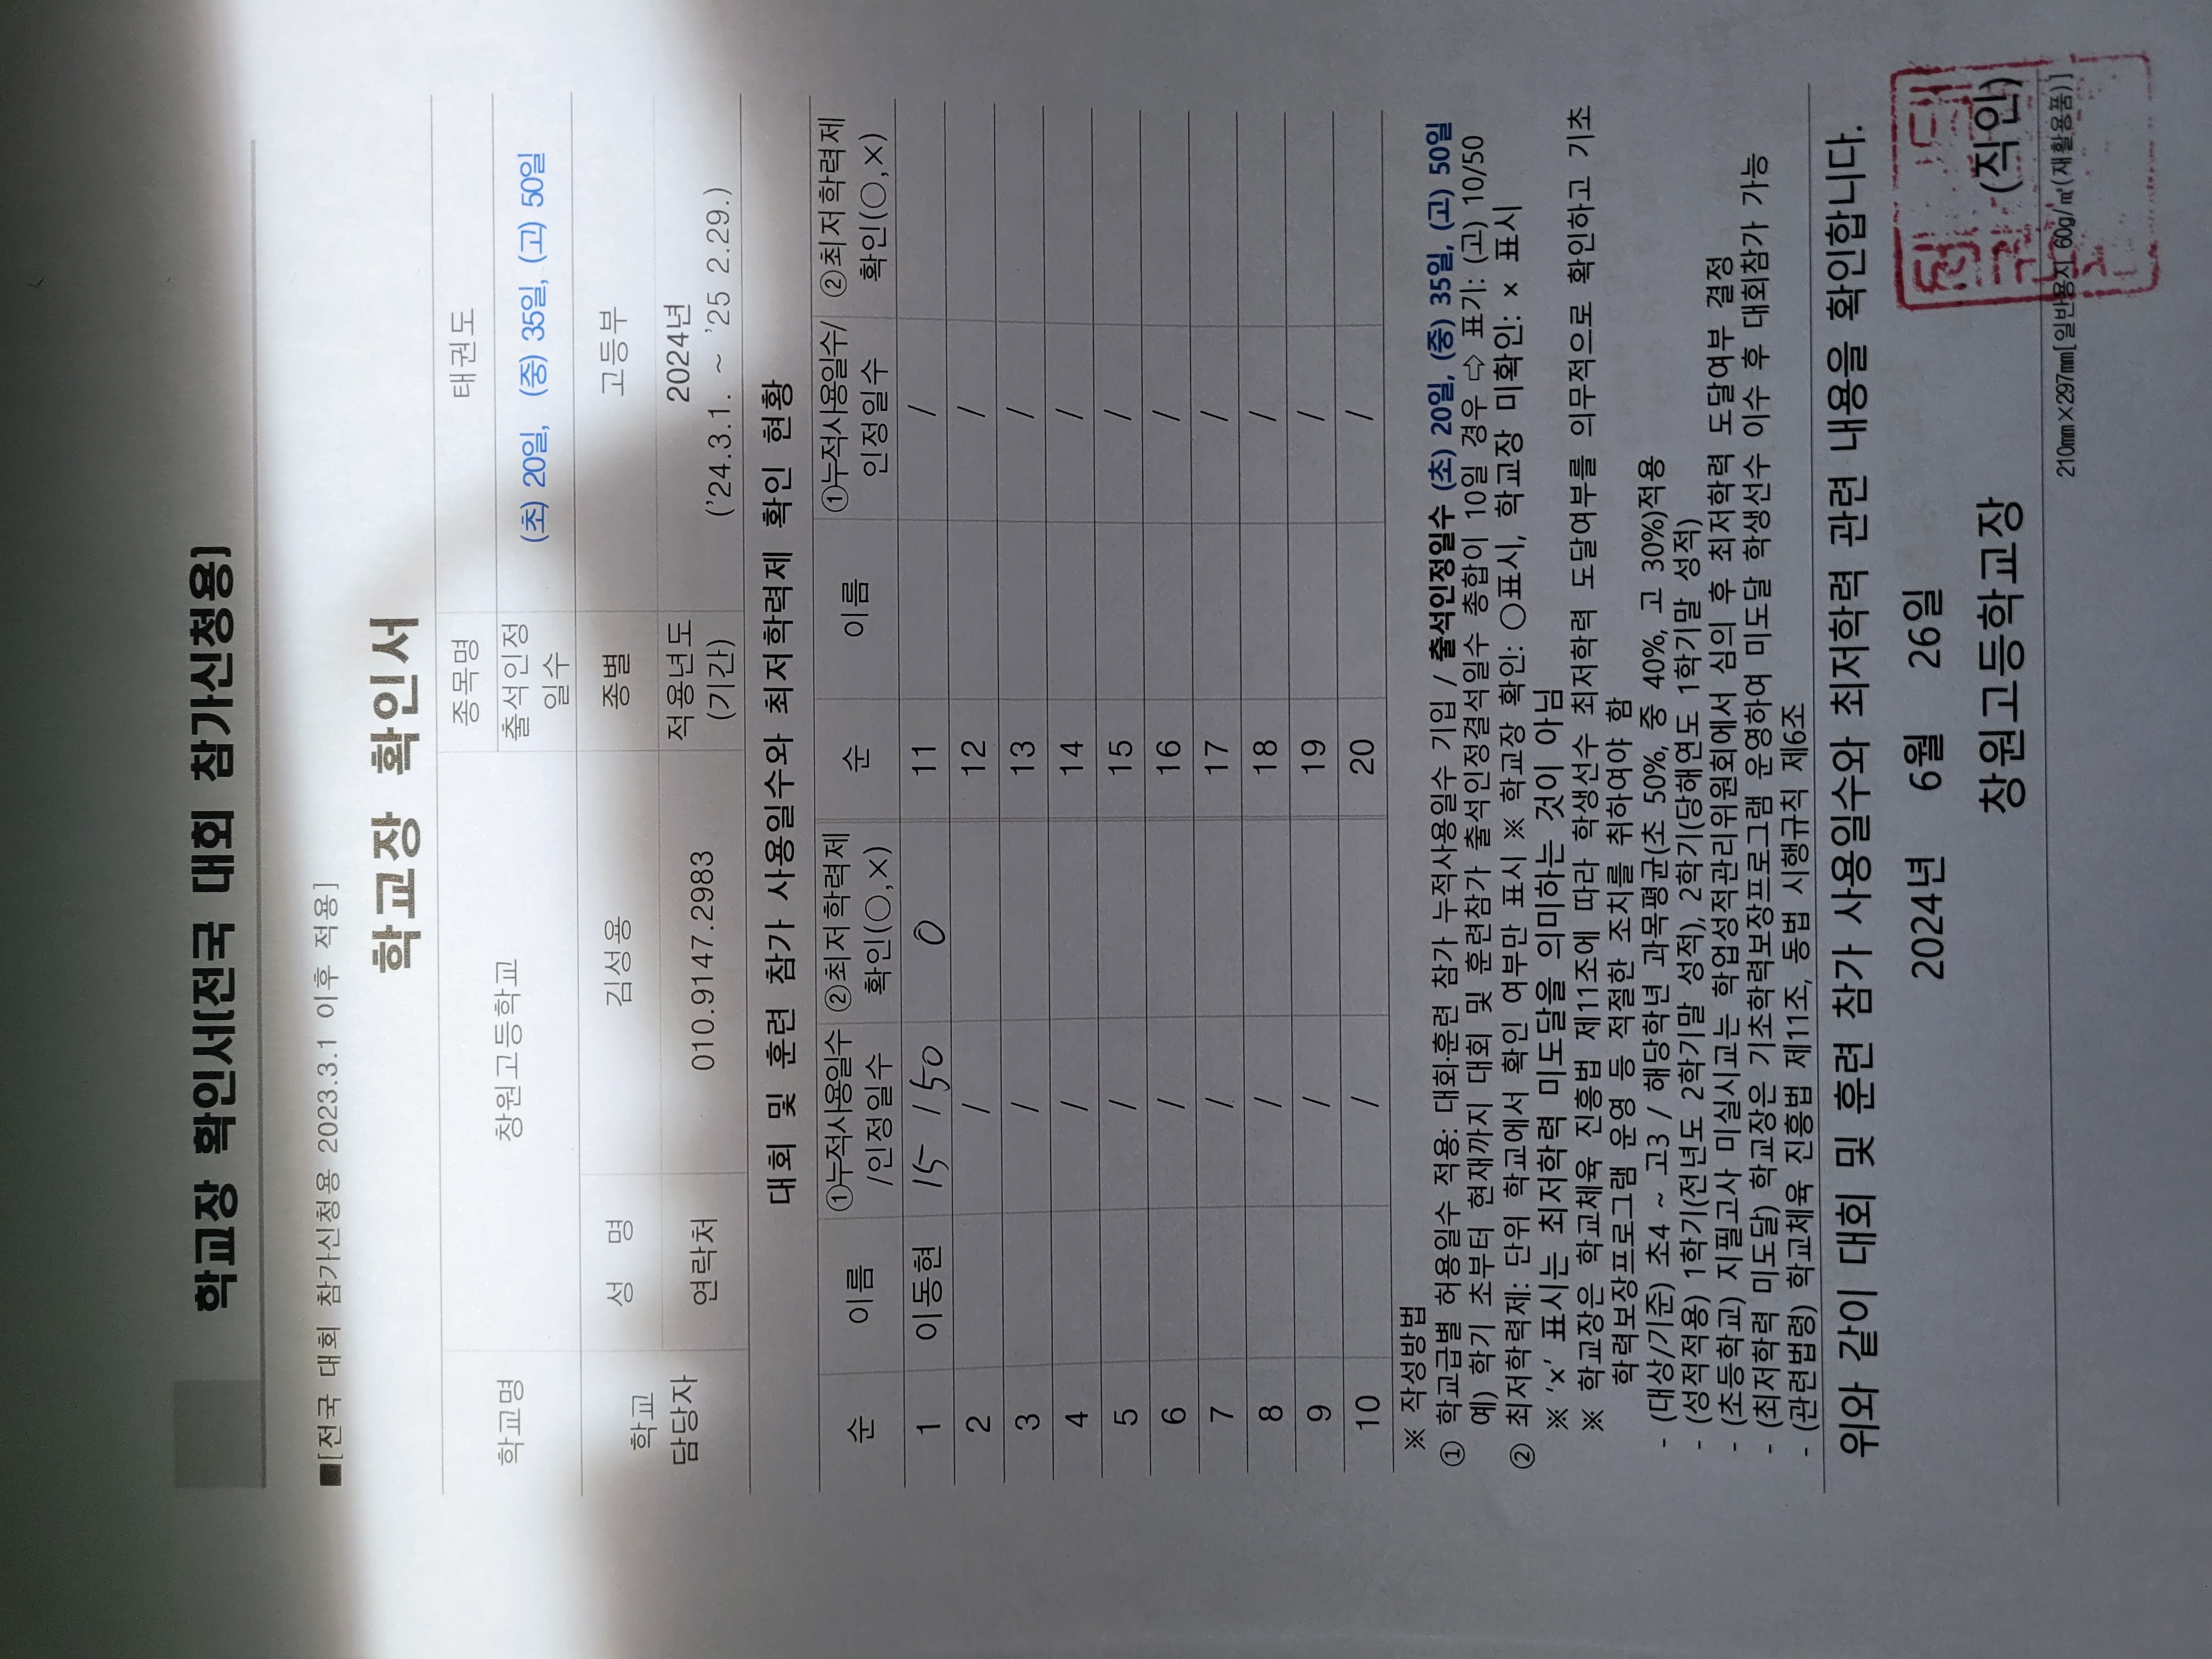 학교장 확인서[전국 대회 참가신청용]
■[전국 대회 참가신청용 2023.3.1 이후 적용]
학교장 확인서
학교명 창원고등학교 종목명 태권도
출석인정 일수 (초) 20일, (중) 35일, (고) 50일
학교 담당자 성 명 김성용 종별 고등부
연락처 010.9147.2983 적용년도 (기간) 2024년 ('24.3.1. ~ '25 2.29.)
대회 및 훈련 참가 사용일수와 최저학력제 확인 현황
순 이름 ①누적사용일수 /인정일수 ②최저학력제 확인(○,×) 순 이름 ①누적사용일수/ 인정일수 ②최저학력제 확인(○,×)
1 이동현 15 / 50 0 11 /
2 / 12 /
3 / 13 /
4 / 14 /
5 / 15 /
6 / 16 /
7 / 17 /
8 / 18 /
9 / 19 /
10 / 20 /
※ 작성방법
① 학교급별 허용일수 적용: 대회·훈련 참가 누적사용일수 기입 / 출석인정일수 (초) 20일, (중) 35일, (고) 50일
예) 학기 초부터 현재까지 대회 및 훈련참가 출석인정결석일수 총합이 10일 경우 ⇨ 표기: (고) 10/50
② 최저학력제: 단위 학교에서 확인 여부만 표시 ※ 학교장 확인: ○표시, 학교장 미확인: × 표시
※ 'x' 표시는 최저학력 미도달을 의미하는 것이 아님
※ 학교장은 학교체육 진흥법 제11조에 따라 학생선수 최저학력 도달여부를 의무적으로 확인하고 기초
학력보장프로그램 운영 등 적절한 조치를 취하여야 함
- (대상/기준) 초4 ~ 고3 / 해당학년 과목평균(초 50%, 중 40%, 고 30%)적용
- (성적적용) 1학기(전년도 2학기말 성적), 2학기(당해연도 1학기말 성적)
- (초등학교) 지필고사 미실시교는 학업성적관리위원회에서 심의 후 최저학력 도달여부 결정
- (최저학력 미도달) 학교장은 기초학력보장프로그램 운영하여 미도달 학생선수 이수 후 대회참가 가능
- (관련법령) 학교체육 진흥법 제11조, 동법 시행규칙 제6조
위와 같이 대회 및 훈련 참가 사용일수와 최저학력 관련 내용을 확인합니다.
2024년 6월 26일
창원고등학교장 (직인)
210㎜×297㎜[일반용지 60g/㎡(재활용품)]